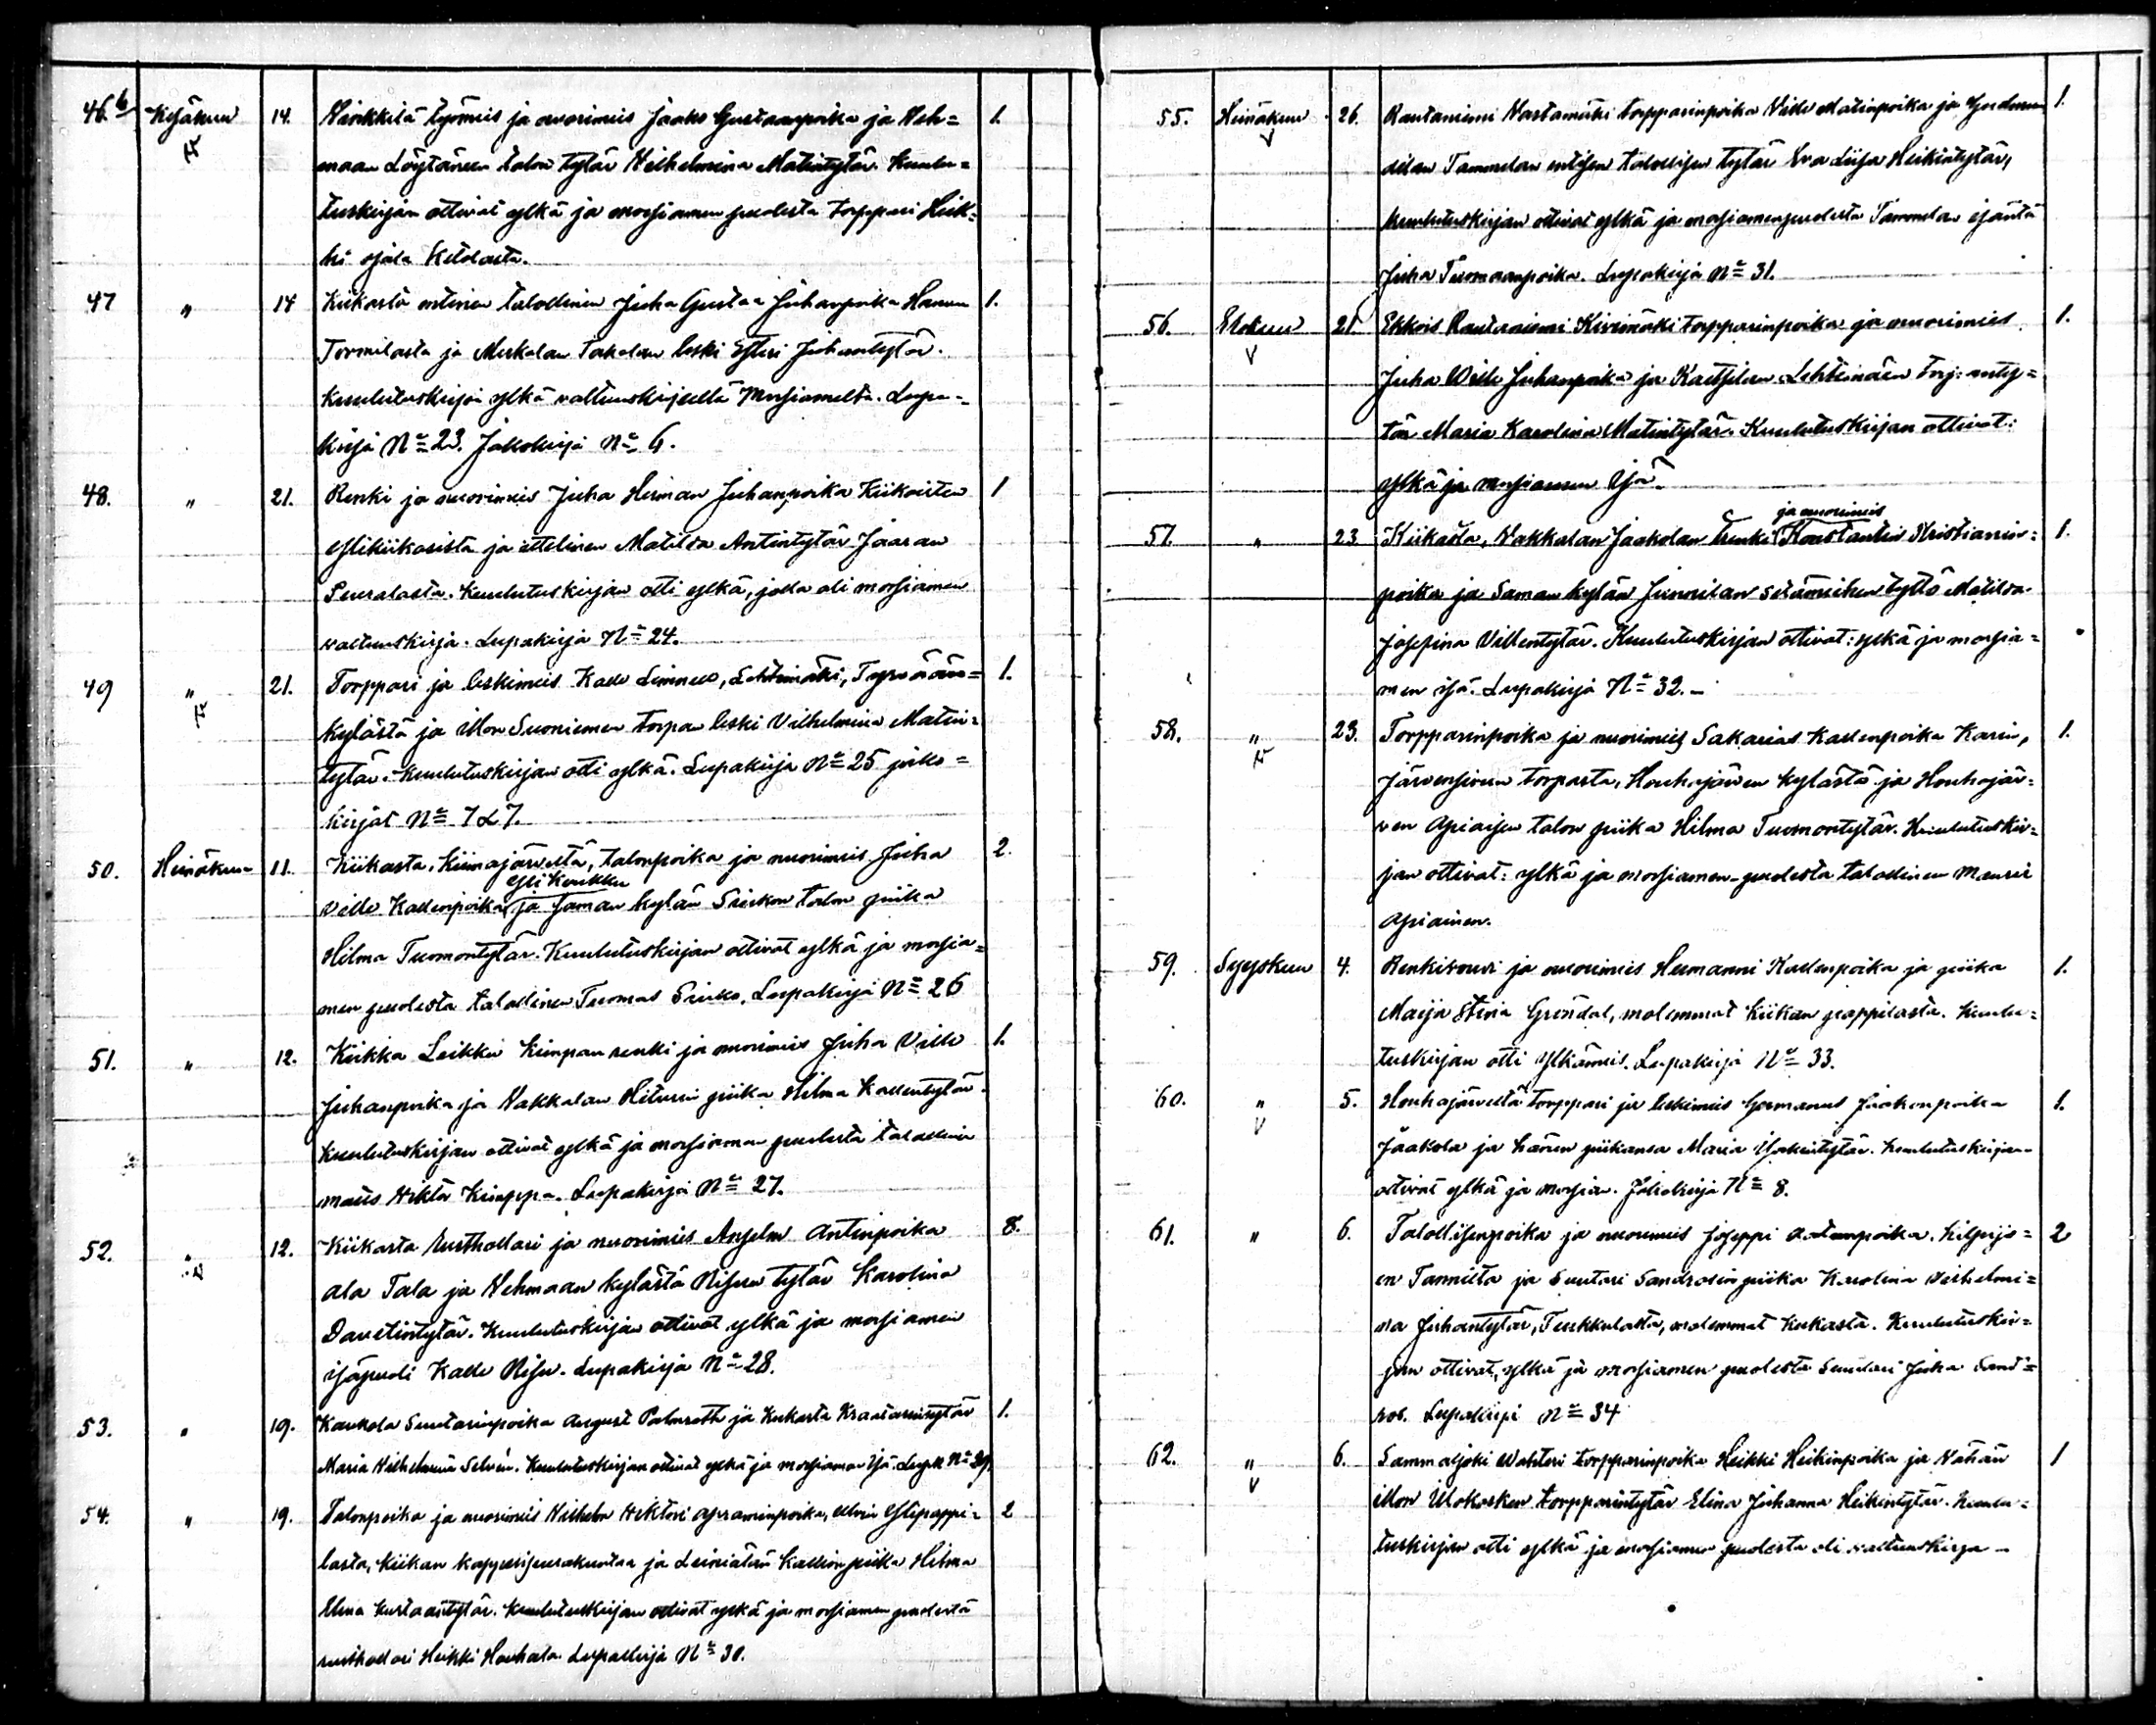 46.b Kesäkuu 14. työmies ja nuorimies Jaako Gustaanpoika ja Veh= 1.
maan Löytäneen talon tytär Vilhelmina Matintytär. Kuulu=
tuskirjan ottivat ylkä ja morsiamen puolesta torppari Heik=
ki Ojala
47 " 14 Kiikasta entinen talollinen Juha Gustaa Juhanpoika 1.
Tormilasta ja Meskalan leski Esteri Juhantytär.
Kuulutuskirja ylkä valtuuskirjeellä Morsiamelta. Lupa=
kirja No 23. Jakokirja No 6.
48. " 21. Renki ja nuorimies Juha Herman Juhanpoika Kiikoisten 1
Ylikiikasista ja itsellinen Matilda Antintytär Jaaran
Kuulutuskirjan otti ylkä, jolla oli morsiamen
valtuuskirja. Lupakirja No 24.
49 " 21. Torppari ja leskimies Kalle Linnell, Lehtimäki, Tyrvään= 1.
kylästä ja Illon Suoniemen torpan leski Vilhelmina Matin=
tytär. Kuulutuskirjan otti ylkä. Lupakirja No 25 jako=
kirjat No 7 & 7.
50. Heinäkuu 11. Kiikasta, Kiimajärveltä, talonpoika ja nuorimies Juha 2.
Ylikeukku
Ville Kallenpoika ja saman kylän talon piika
Hilma Tuomontytär. Kuulutuskirjan ottivat ylkä ja morsia=
men puolesta talollinen Tuomas Lupakirja No 26
51. " 12. Kiikka Leikku Kimpan renki ja nuorimies Juha Ville 1.
Juhanpoika ja Vakkalan Hiturin piika Hilma Kallentytär.
Kuulutuskirjan ottivat ylkä ja morsiaman puolesta talollinen
Lupakirja No 27.
52. " 12. Kiikasta rusthollari ja nuorimies Anselm Antinpoika 8.
Ala Tala ja Vehmaan kylästä Risun tytär Karolina
Davetintytär. Kuulutuskirjan ottivat ylkä ja morsiamen
isäpuoli Kalle Risu. Lupakirja No 28.
53. " 19. Kaukola Suutarinpoika August Palmroth ja Kiikasta 1.
Maria Vilhelmina Selvén. Kuulutuskirjan ottivat ylkä ja morsiaman isä. Lupak No 29.
54. " 19. Talonpoika ja nuorimies Vilhelm Viktori Apraminpoika, Ylipappi= 2
lasta, Kiikan kappeliseurakuntaa ja Kallion piika Hilma
Elina Kustaantytär. Kuulutuskirjan ottivat ylkä ja morsiamen puolesta
rusthollari Heikki Houhala Lupakirja No 30.
55. Heinäkuu 26. Rautaniemi Vastamäki torpparinpoika Ville Matinpoika ja 1.
Tammelan entisen talollisen tytär Eva Liisa Heikintytär,
kuulutuskirjan ottivat ylkä ja morsiamen puolesta Tammelan isäntä
Juha Tuomaanpoika. Lupakirja No 31.
56. Elokuu 21 Ekkois Rautaniemi Kivimäki torpparinpoika ja nuorimies 1.
Juha Wille Juhanpoika ja Kaltsilan Lehtimäen torp:
tär Maria Karolina Matintytär. Kuulutuskirjan ottivat:
ylkä ja morsiamen isä.
ja nuorimies
57. " 23 Kiikasta, Vakkalan Jaakolan renki Konstantin Kristianin= 1.
poika ja Saman kylän Junnilan tyttö Matilda
Josefina Villentytär. Kuulutuskirjan ottivat: ylkä ja morsia=
men isä. Lupakirja No 32. -
58. " 23. Torpparinpoika ja nuorimies Sakarias Kallenpoika Karin, 1.
Järvensivun torpasta, Houhajärven kylästä ja Houhajär=
ven Apiaisen talon piika Hilma Tuomontytär. Kuulutuskir=
jan ottivat: ylkä ja morsiamen puolesta talollinen
Apiainen.
59. Syyskuu 4. Renkivouvi ja nuorimies Hermanni Kallenpoika ja piika 1.
Maija Stiina Gröndal, molemmat Kiikan pappilasta. Kuulu=
tuskirjan otti ylkämies. Lupakirja No 33.
60. " 5. Houhajärveltä torppari ja leskimies Jaakonpoika 1.
Jaakola ja hänen piikansa Maria Kuulutuskirjan
ottivat ylkä ja morsian. Jakokirja No 8.
61. " 6. Talollisenpoika ja nuorimies Joseppi Aatamnpoika, 2
en Tannilta ja Suutari Sandrosin piika Karolina Vilhelmi=
na Juhantytär, Turkkulasta, molemmat Kiikasta. Kuulutuskir=
jan ottivat, ylkä ja morsiamen puolesta Suutari Juha Sand=
ros. Lupakirja No 34
62. " 6. Sammaljoki Wahteri torpparinpoika Heikki Heikinpoika ja 1
Illon Ulokosken torpparintytär Elina Johanna Heikintytär. Kuulu=
tuskirjan otti ylkä ja morsiamen puolesta oli valtuuskirja -